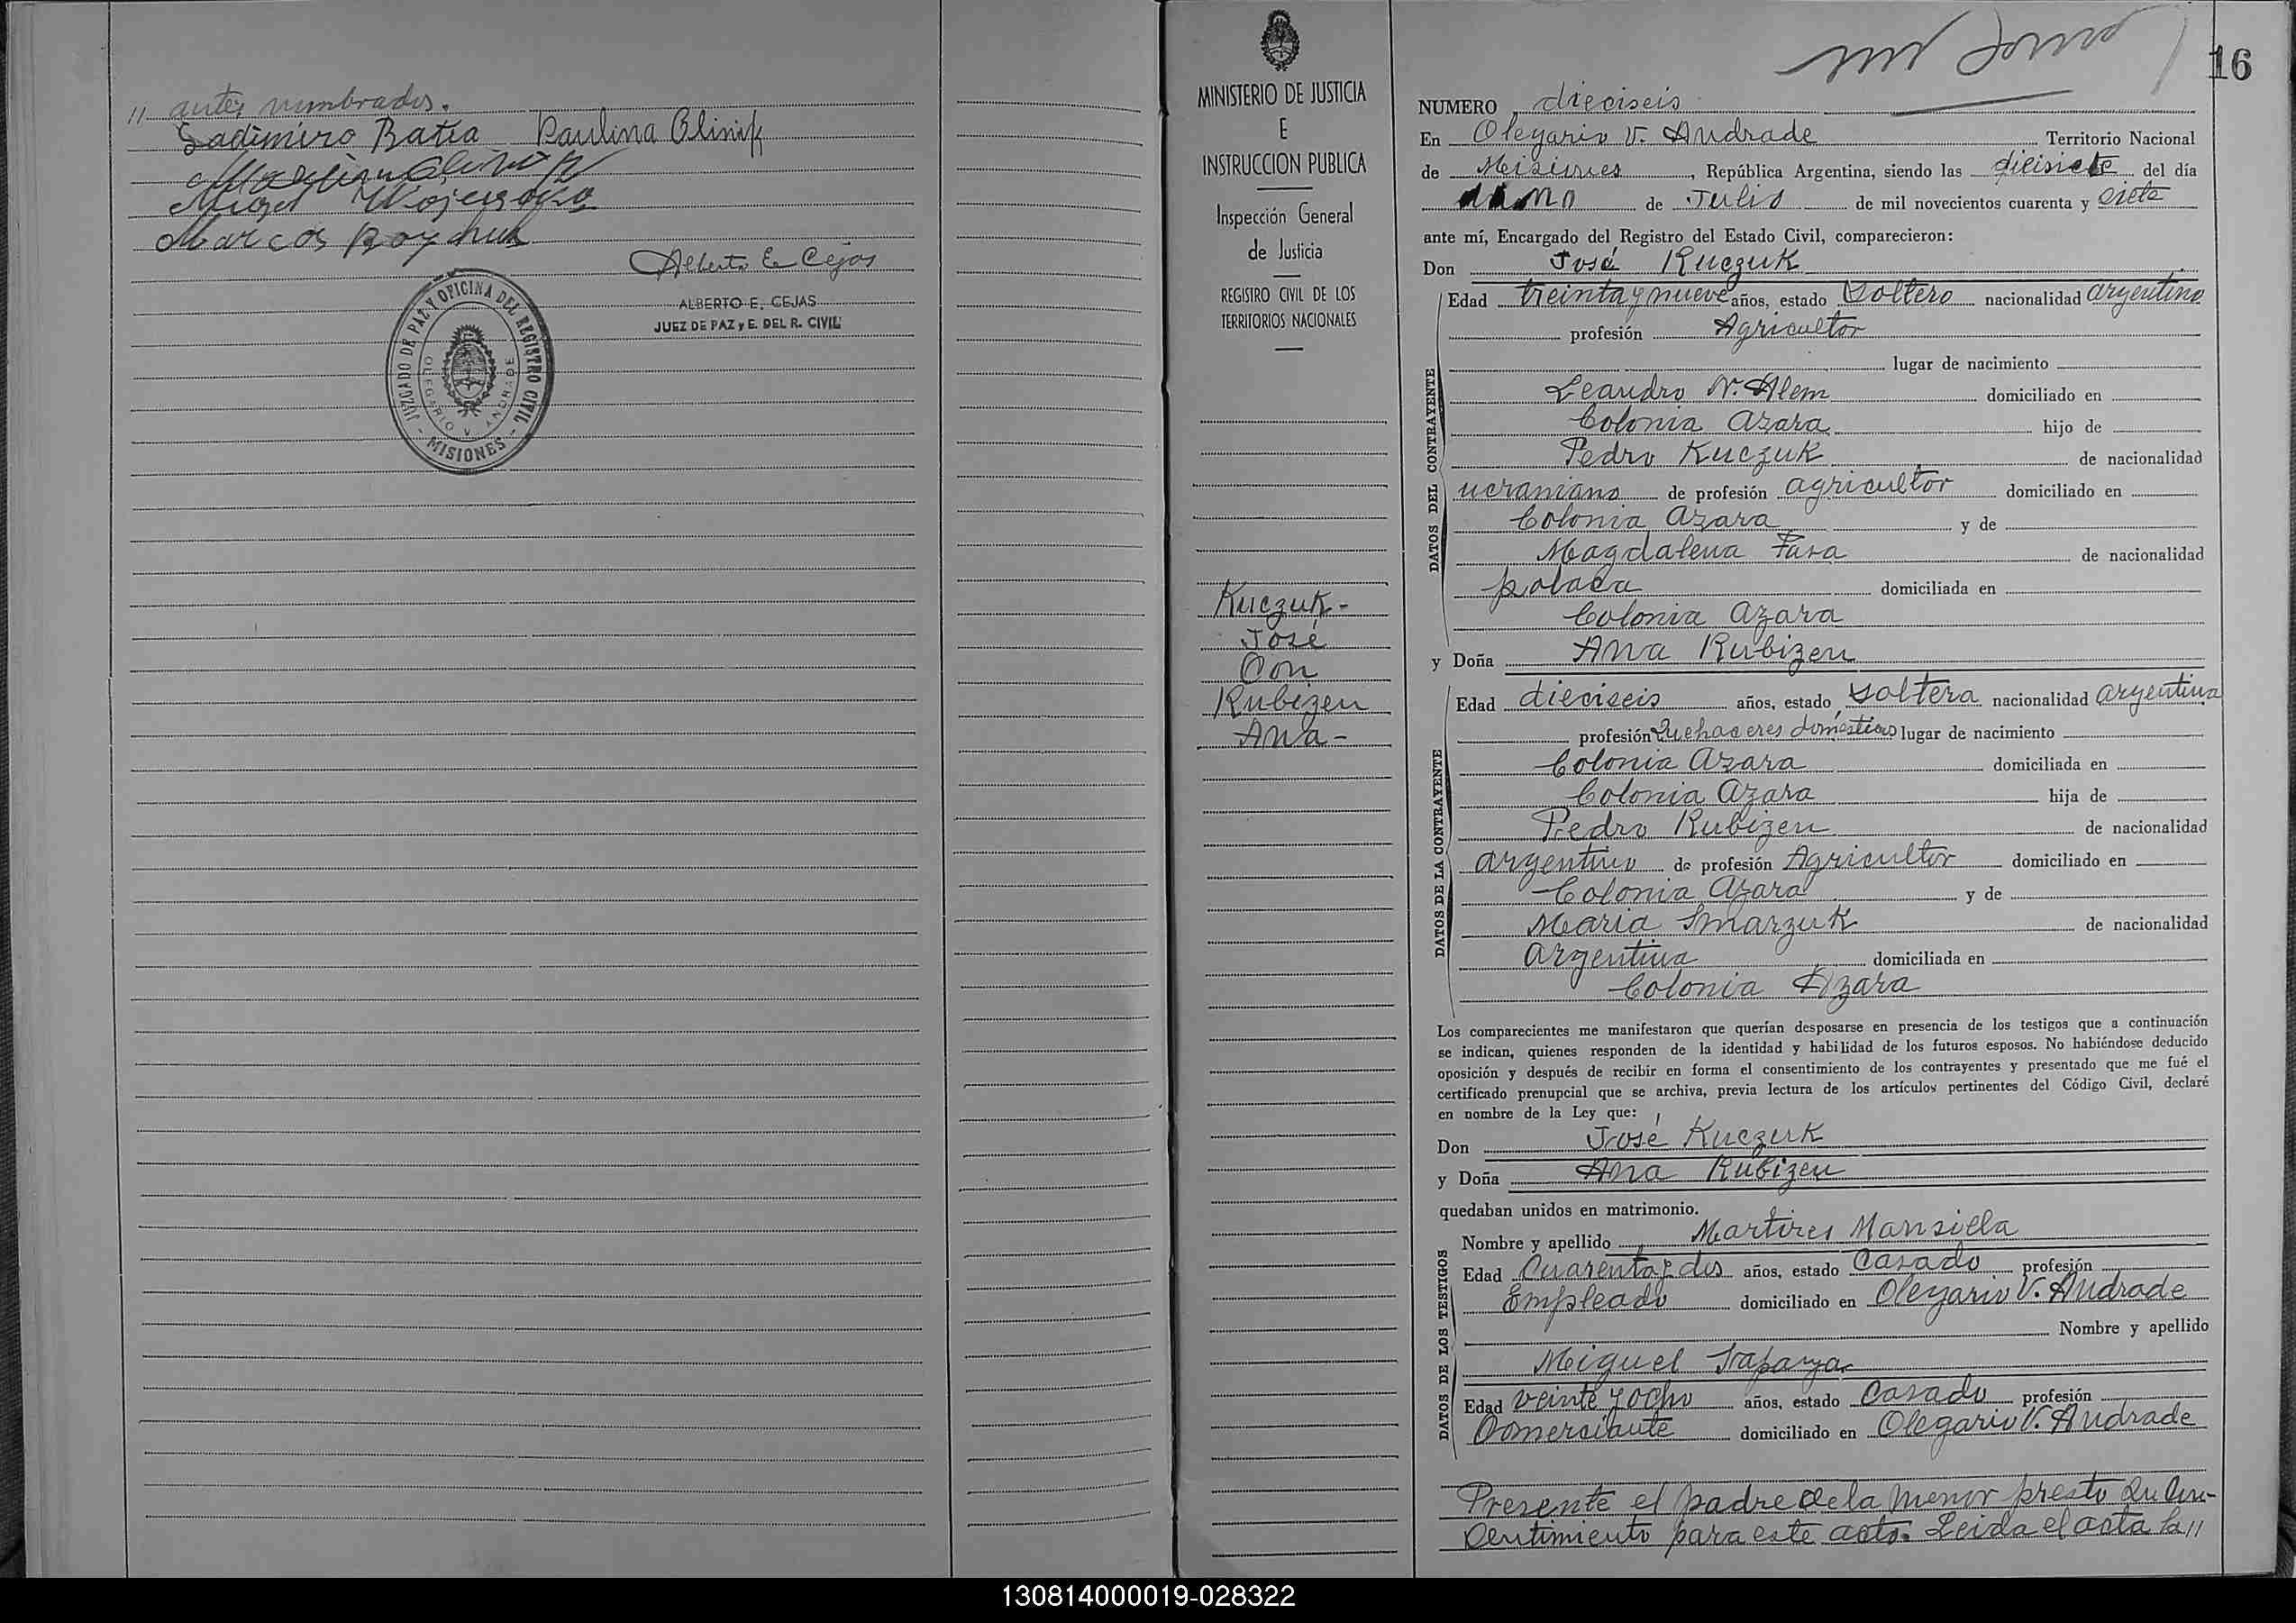 " antes nombrados.
Ladimiro Batia Paulina Olinik
Miguel
Marcos Boychuk
Alberto E Cejas
ALBERTO E. CEJAS
JUEZ DE PAZ y E. DEL R. CIVIL
JUZGADO DE PAZ Y OFICINA DEL REGISTRO CIVIL
OLEGARIO V. ANDRADE
- MISIONES -
MINISTERIO DE JUSTICIA
E
INSTRUCCION PUBLICA
Inspección General
de Justicia
REGISTRO CIVIL DE LOS
TERRITORIOS NACIONALES
Kuczuk-
José
Con
Rubizen
Ana-
16
NUMERO dieciseis
En Olegario V. Andrade Territorio Nacional
de Misiones, República Argentina, siendo las diecisiete del día
de Julio de mil novecientos cuarenta y siete
ante mí, Encargado del Registro del Estado Civil, comparecieron:
Don José Kuczuk
DATOS DEL CONTRAYENTE
Edad treinta y nueve años, estado Soltero nacionalidad argentino
profesión Agricultor
lugar de nacimiento
Leandro N. Alem domiciliado en
Colonia Azara hijo de
Pedro Kuczuk de nacionalidad
ucraniano de profesión agricultor domiciliado en
Colonia Azara y de
Magdalena de nacionalidad
polaca domiciliada en
Colonia Azara
y Doña Ana Rubizen
DATOS DE LA CONTRAYENTE
Edad dieciseis años, estado Soltera nacionalidad argentina
profesión Quehaceres domesticos lugar de nacimiento
Colonia Azara domiciliada en
Colonia Azara hija de
Pedro Rubizen de nacionalidad
argentino de profesión Agricultor domiciliado en
Colonia Azara y de
Maria Smarzuk de nacionalidad
Argentina domiciliada en
Colonia Azara
Los comparecientes me manifestaron que querían desposarse en presencia de los testigos que a continuación
se indican, quienes responden de la identidad y habilidad de los futuros esposos. No habiéndose deducido
oposición y después de recibir en forma el consentimiento de los contrayentes y presentado que me fué el
certificado prenupcial que se archiva, previa lectura de los artículos pertinentes del Código Civil, declaré
en nombre de la Ley que:
Don José Kuczuk
y Doña Ana Rubizen
quedaban unidos en matrimonio.
DATOS DE LOS TESTIGOS
Nombre y apellido Martires Mansilla
Edad Cuarenta y dos años, estado Casado profesión
Empleado domiciliado en Olegario V. Andrade
Nombre y apellido
Miguel
Edad veinte y ocho años, estado Casado profesión
Comerciante domiciliado en Olegario V. Andrade
Presente el padre de la menor presto su Con-
sentimiento para este acto. Leida el acta la "
130814000019-028322